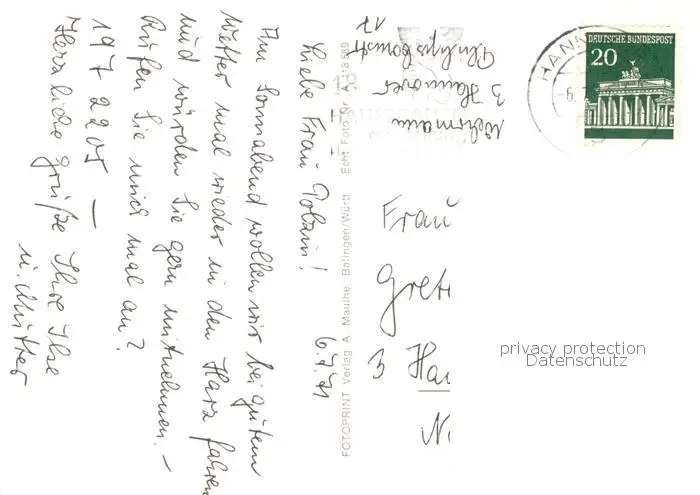 6.7.71
Liebe Frau Pobanz!
Am Sonnabend wollen wir bei gutem
Wetter mal wieder in den Harz fahren
und würden Sie gern mitnehmen. –
Rufen Sie mich mal an?
197 2205 –
Herzliche Grüße Ihre Ilse
u. Mutter
FOTOPRINT Verlag A. Mauthe, Balingen/Württ Echt Foto Nr. A 18589
Wehrmann
3 Hannover
17
HANN
-6.
DEUTSCHE BUNDESPOST
20
Frau
Gret
3 Han
privacy protection
Datenschutz